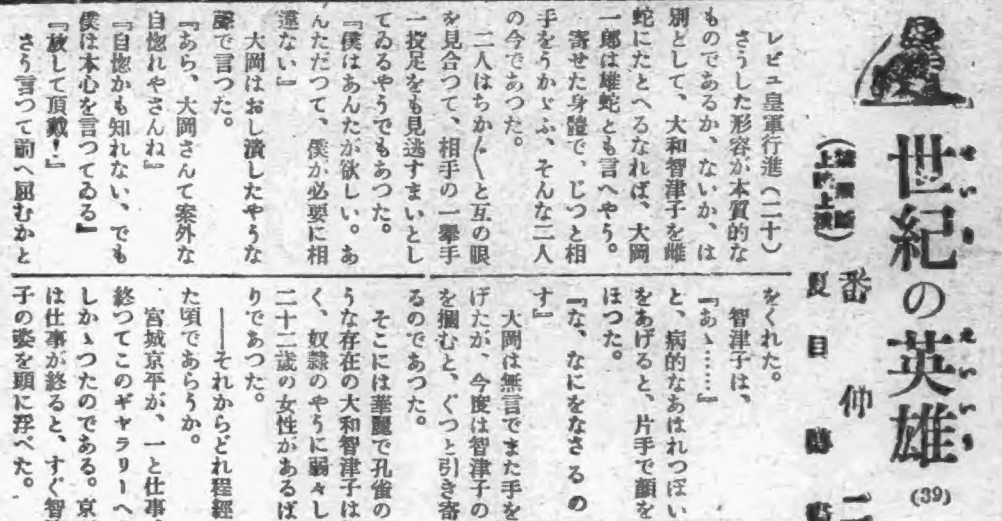 世紀の英雄
せいきのえいゆう
(39)
番伸二
夏目
レビュ皇軍行進(二十)
さうした形容が本質的な
ものであるか、ないか、は
別として、大和智津子を雌
蛇にたとへるなれば、大岡
一郎は雄蛇とも言へやう。
寄せた身體で、じつと相
手をうかゞふ、そんな二人
の今であつた。
二人はちか〱と互の眼
を見合つて、相手の一擧手
一投足をも見逃すまいとし
てゐるやうでもあつた。
『僕はあんたが欲しい。あ
んただつて、僕が必要に相
違ない』
大岡はおし潰したやうな
聲で言つた。
『あら、大岡さんて案外な
自惚れやさんね』
『自惚かも知れない、でも
僕は本心を言つてゐる』
『放して頂戴!』
さう言つて前へ屈むかと
をくれた。
智津子は、
『あゝ……』
と、病的なあはれつぽい
をあげると、片手で顏を
ほつた。
『な、なにをなさるの
す』
大岡は無言でまた手を
げたが、今度は智津子の
を摑むと、ぐつと引き寄
るのであつた。
そこには華麗で孔雀の
うな存在の大和智津子は
く、奴隷のやうに弱々し
二十二歳の女性があるば
りであつた。
――それからどれ程經
た頃であらうか。
宮城京平が、一と仕事
終つてこのギャラリーへ
しかゝつたのである。京
は仕事が終ると、すぐ智
子の姿を頭に浮べた。